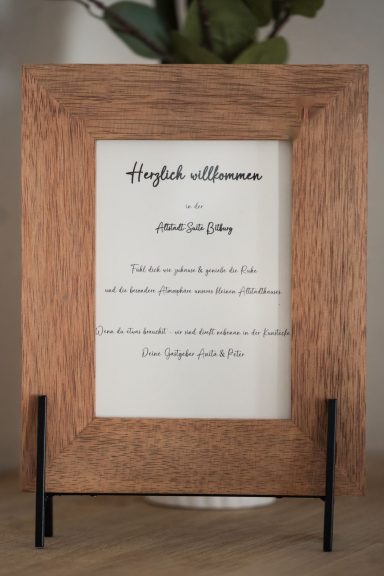 Herzlich willkommen
in der
Altstadt-Suite Bitburg
Fühl dich wie zuhause & genieße die Ruhe
und die besondere Atmosphäre unseres kleinen Altstadthauses.
Wenn du etwas brauchst - wir sind direkt nebenan in der Kunstecke.
Deine Gastgeber Anita & Peter